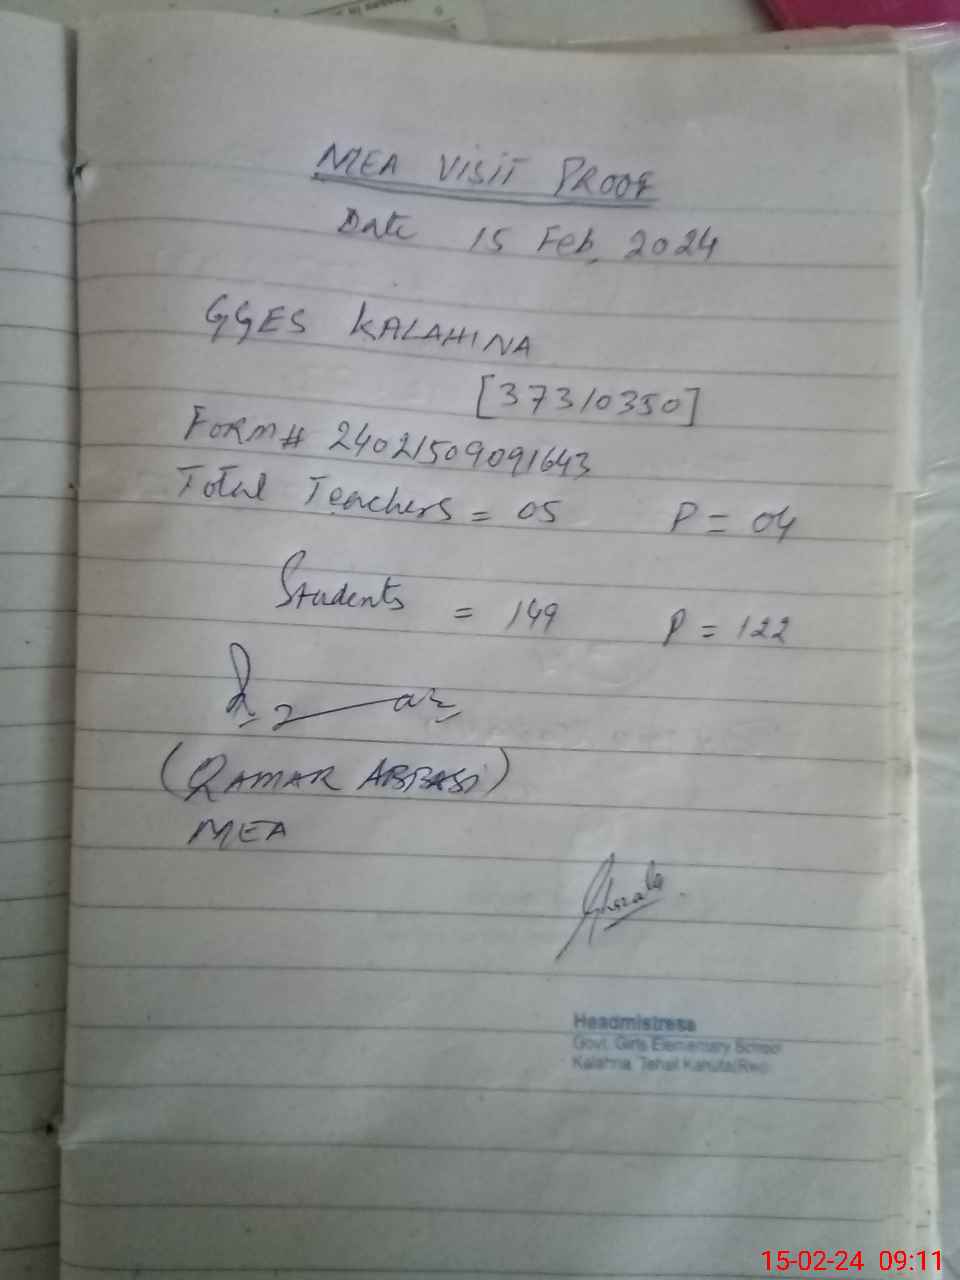 MEA VISIT PROOF
Date 15 Feb, 2024
GGES KALAHINA
[37310350]
FORM# 24021509091643
Total Teachers = 05 P = 04
Students = 149 P = 122
(QAMAR ABBASI)
MEA
Headmistress
Govt. Girls Elementary School
Tehsil
15-02-24 09:11